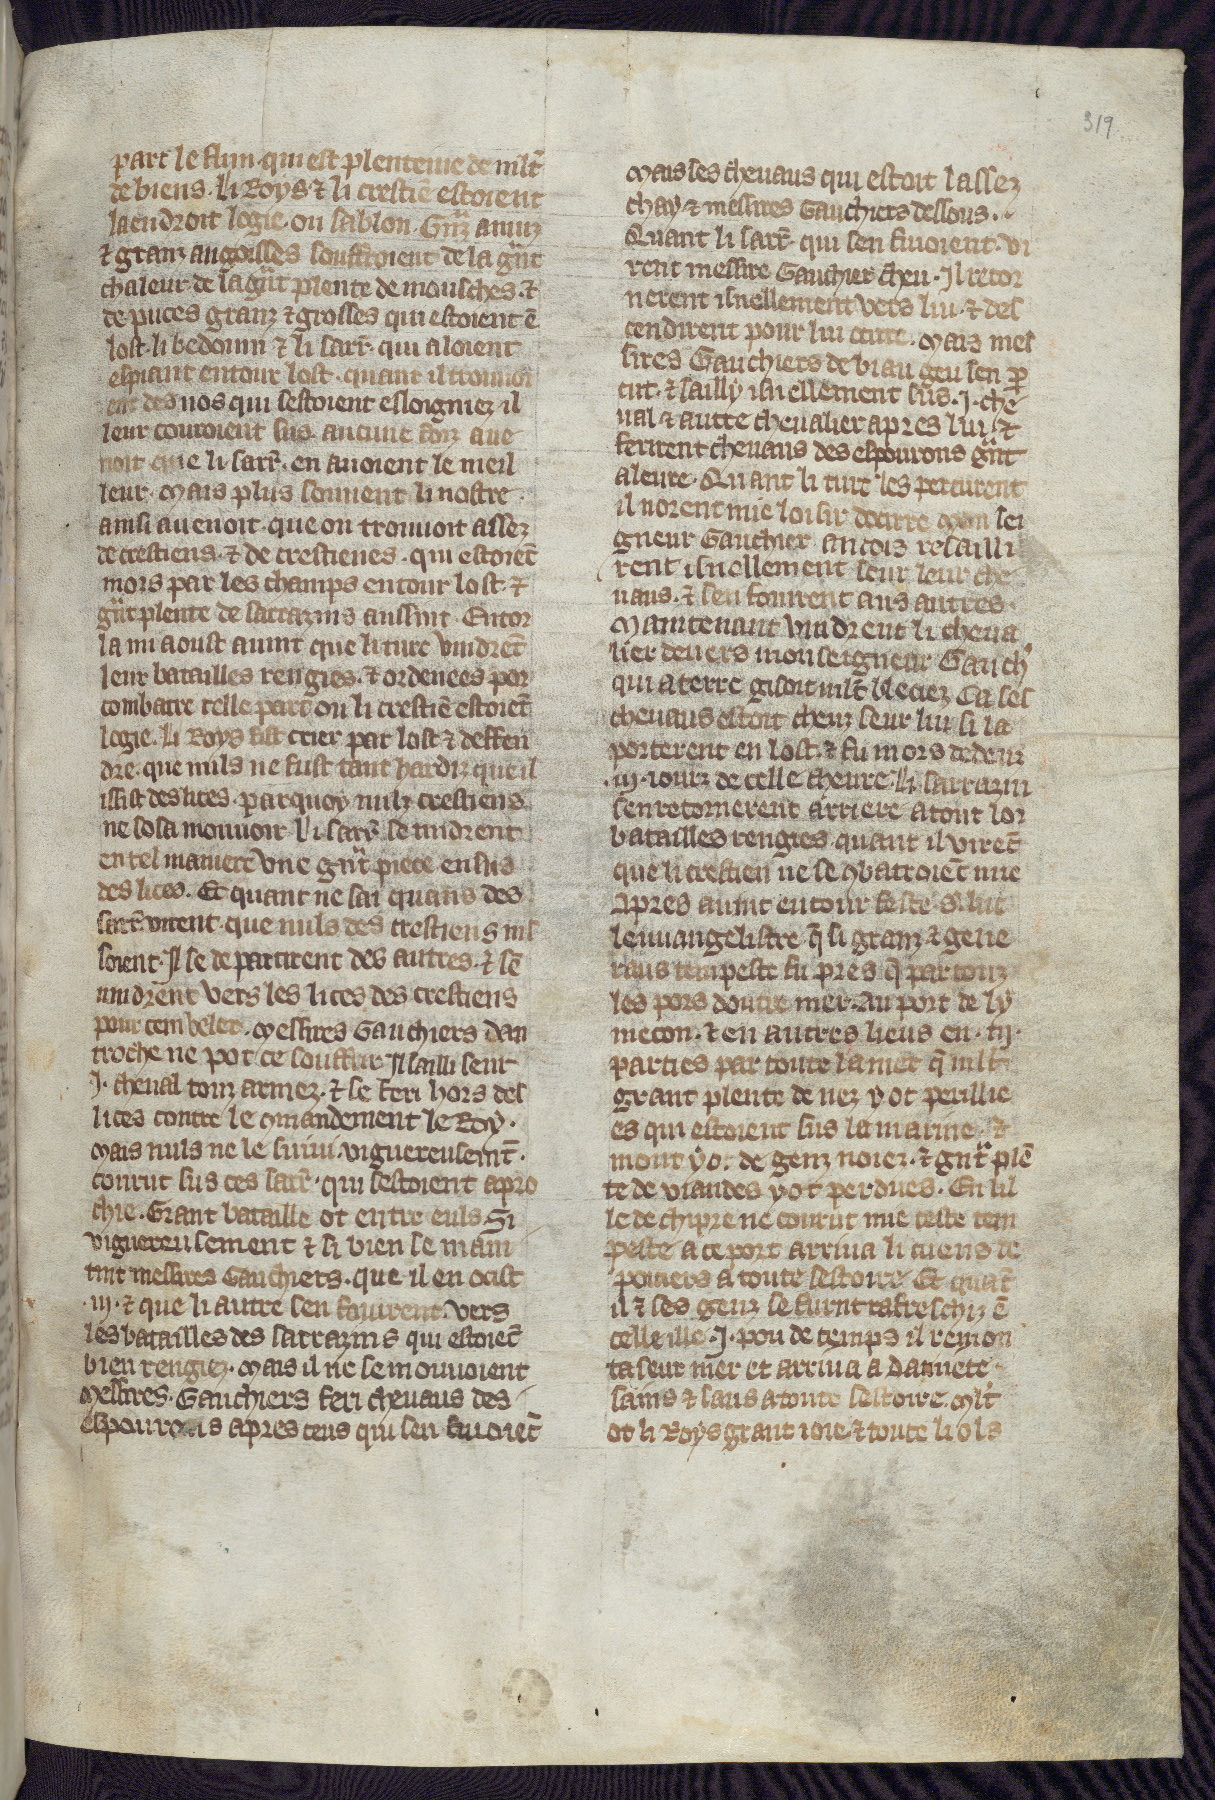 319
part le flun qui est plenteiue de mlt̄
de biens. Li Roys ⁊ li crestiē estoient
laendroit logie. ou sablon. Grāz anuiz
⁊ granz angoisses souffroient de la grāt
chaleur. de la grāt plente de mousches. ⁊
de puces granz ⁊ grosses qui estoient ē
lost. li bedouin ⁊ li sarr̄. qui aloient
espiant entour lost. quant il trouuoi
ent des nos qui sestoient esloigniez il
leur couroient sus. aucune foiz aue
noit que li sarr̄. en auoient le meil
leur. Mais plus souuent li nostre.
ainsi auenoit. que on trouuoit assez
de crestiens. ⁊ de crestienes. qui estoiēt
mors par les champs entour lost. ⁊
grāt plente de sarrazins aussint. Entor
la mi aoust auint que li turc vindrēt
leur batailles rengies. ⁊ ordenees por
combatre celle part ou li crestiē estoiēt
logie. Li Roys fist crier par lost ⁊ deffen
dre. que nuls ne fust tant hardiz que il
issist des lices. par quoy nulz crestiens
ne sosa mouuoir. Li sarr̄. se tindrent
en tel maniere vne grāt piece ensus
des lices. Et quant ne sai quans des
sarr̄. virent. que nuls des crestiens nis
soient. Il se departirent des autres. ⁊ sē
vindrent vers les lices des crestiens
pour cembeler. Messires Gauchiers dau
troche ne pot ce souffrir Il sailli seur
.I. cheual touz armez. ⁊ se feri hors des
lices contre le cōmandement le Roy.
Mais nuls ne le suiui. viguereusemt̄.
courut sus ces sarr̄. qui sestoient apro
chie. Grant bataille ot entre euls. Si
viguereusement ⁊ si bien se main
tint messires Gauchiers. que il en ocist
.iij. ⁊ que li autre sen fouirent. vers
les batailles des sarrazins qui estoiēt
bien rengiez. Mais il ne se mouuoient
Messires. Gauchiers feri cheuaus des
espourons apres ceus qui sen fuioiēt
Mais ses cheuaus qui estoit lassez
chay ⁊ messires Gauchiers dessous.
Quant li sarr̄. qui sen fuioient. vi
rent messire Gauchier cheu. Il retor
nerent isnellement vers lui. ⁊ des
cendirent pour lui ocirre. Mais mes
sires Gauchiers de biau geu sen ꝑ
cut. ⁊ sailly isnellement sus .I. che
ual ⁊ autre cheualier apres lui. ⁊
ferirent cheuaus des espourons grāt
aleure. Quant li turc les percurent
il norent mie loisir docirre mon sei
gneur Gauchier ancois resailli
rent isnellement seur leur che
uaus. ⁊ sen fouirent aus autres.
Maintenant vindrent li cheua
lier deuers monseigneur Gauch̄
qui a terre gisoit mlt̄ bleciez. Car ses
cheuaus estoit cheuz seur lui si la
porterent en lost. ⁊ fu mors dedenz
.iij. iourz de celle cheure. Li sarrazin
sen retornerent arriere a tout lor
batailles rengies. quant il virēt
que li crestien ne se ꝯbatroiēt mie
Apres auint entour feste S. luc
leuuangelistre q̄ si granz ⁊ gene
raus tempeste fu pres q̄ par touz
les pors doutre mer. Au port de ly
mecon. ⁊ en autres lieus en .iij.
parties par toute la mer q̄ mlt̄
grant plente de nez y ot perillie
es qui estoient sus la marine. ⁊
mout y ot de genz noiez. ⁊ grāt plē
te de viandes y ot perdues. En lil
le de chipre ne courut mie ceste tem
peste a ce port arriua li cuens de
poitiers a toute sestoire. Et quāt
il ⁊ ses genz se furnt rafreschiz ē
celle ille .I. pou de temps il remon
ta seur mer et arriua a Damiete
sains ⁊ saus a toute sestoire. Mlt̄
ot li Roys grant ioie. ⁊ toute li ols